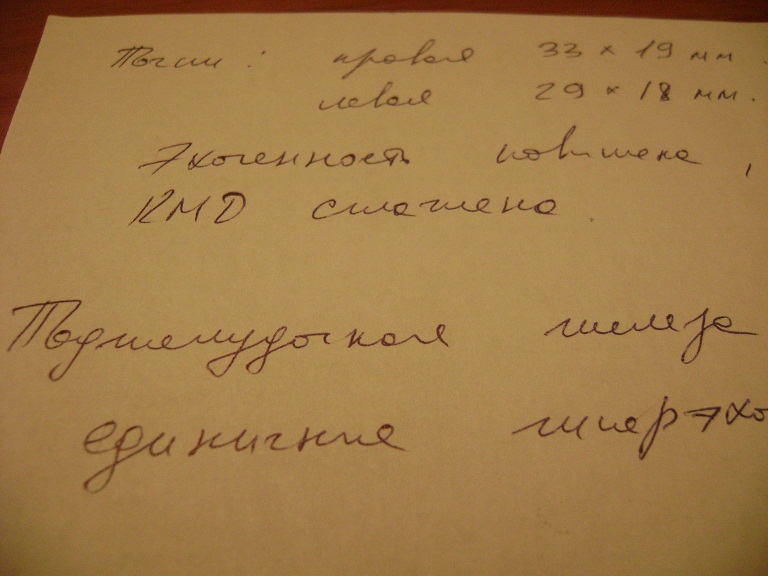 Почки: правая 33 × 19 мм.
левая 29 × 18 мм.
Эхогенность повышена,
КМД сглажена.
Поджелудочная железа
единичные гиперэхо